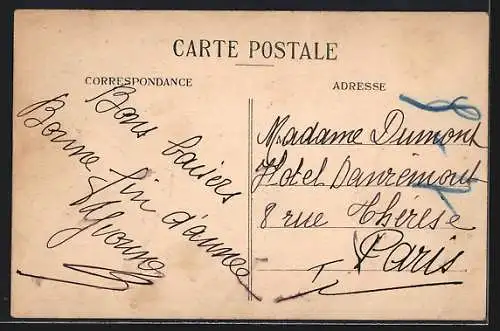 CARTE POSTALE
CORRESPONDANCE
Bons baisers
Bonne fin d'année
Yvonne
ADRESSE
Madame Dumont
Hotel Danrémont
8 rue Thérèse
Paris